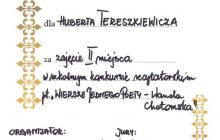 dla HUBERTA TERESZKIEWICZA
za zajęcie II miejsca
w szkolnym konkursie recytatorskim
pt. „WIERSZE JEDNEGO POETY - Wanda
Chotomska”
ORGANIZATOR: JURY: